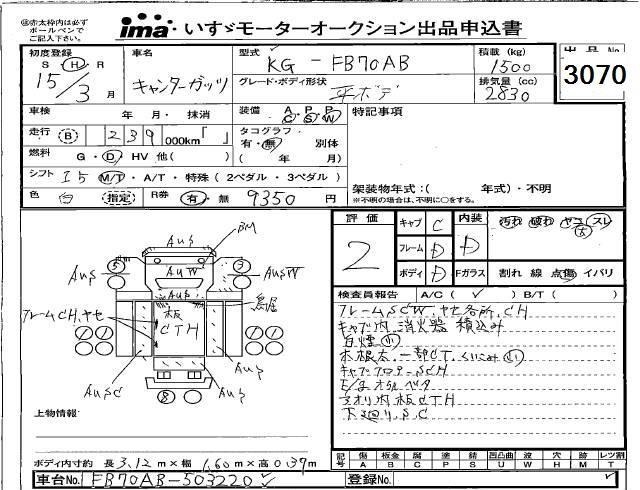 ※赤太枠内は必ず
ボールペンで
ご記入下さい。
ima いすゞモーターオークション出品申込書
初度登録
S H R
15/3 月
車名
キャンターガッツ
型式
KG-FB70AB
積載 (kg)
1500
出品No
3070
グレード・ボディ形状
平ボデ
排気量 (cc)
2830
車検 年 月・抹消
装備 A/C P/S P/W
特記事項
走行 B 239 000km「 」
タコグラフ
有・無 別体
( 年 月)
燃料 G・D・HV 他( )
シフト I5 M/T・A/T・特殊(2ペダル・3ペダル)
架装物年式:( 年式)・不明
※不明の場合は、不明に○をする。
色 白 指定 R券 有・無 9350 円
評価 2
キャブ C
フレーム D
ボディ D
内装 D
Fガラス
汚れ 破れ ヤニ スレ
大
割れ 線 点傷 イバリ
検査員報告 A/C( ✓ ) B/T( )
フレームSCW.ヤセ各所.CH
キャブ内消火器積込み
白煙小
木根太.一部CT.くいこみ小
キャブフロアーSCH
E/gオイルベタ
アオリ内板CTH
下廻り.S.C
AUS
BM
AUS
AUW
AUSW
AUS
鳥居
フレームCH.ヤセ
木板
CTH
AUSC
AUS
AUS
5
7
8
上物情報:
ボディ内寸約 長 3.12 m×幅 1.60 m×高 0.39 m
記号 傷 板金 腐 塗 錆 凹凸曲 波 穴 跡 レツ割
A B C P S U W H M T
車台No. FB70AB-503220 ✓
登録No.